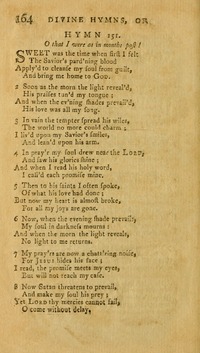 164 DIVINE HYMNS, OR
HYMN 151.
O that I were as in months past!
SWEET was the time when first I felt
The Savior's pard'ning blood
Apply'd to cleanse my soul from guilt,
And bring me home to GOD.
2 Soon as the morn the light reveal'd,
His praises tun'd my tongue;
And when the ev'ning shades prevail'd,
His love was all my song.
3 In vain the tempter spread his wiles,
The world no more could charm;
I liv'd upon my Savior's smiles,
And lean'd upon his arm.
4 In pray'r my soul drew near the LORD,
And saw his glories shine;
And when I read his holy word,
I call'd each promise mine.
5 Then to his saints I often spoke,
Of what his love had done;
But now my heart is almost broke,
For all my joys are gone.
6 Now, when the evening shade prevails,
My soul in darkness mourns:
And when the morn the light reveals,
No light to me returns.
7 My pray'rs are now a chatt'ring noise,
For JESUS hides his face;
I read, the promise meets my eyes,
But will not reach my case.
8 Now Satan threatens to prevail,
And make my soul his prey;
Yet LORD thy mercies cannot fail,
O come without delay,